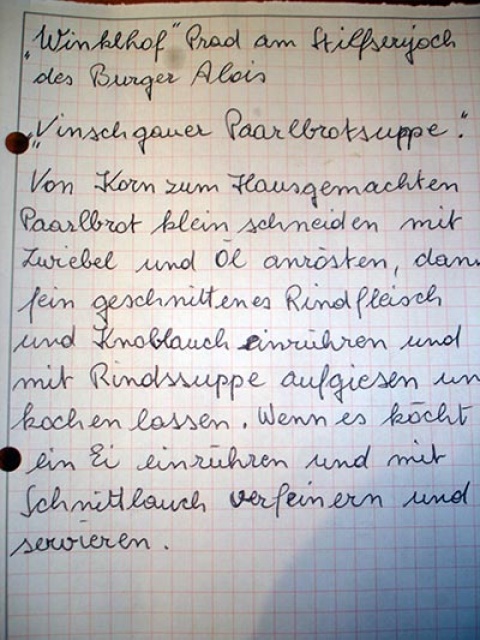 „Winklhof" Prad am Stilfserjoch
des Burger Alois
„Vinschgauer Paarlbrotsuppe".
Von Korn zum Hausgemachten
Paarlbrot klein schneiden mit
Zwiebel und Öl anrösten, dann
fein geschnittenes Rindfleisch
und Knoblauch einrühren und
mit Rindssuppe aufgiesen un
kochen lassen. Wenn es kocht
ein Ei einrühren und mit
Schnittlauch verfeinern und
servieren.